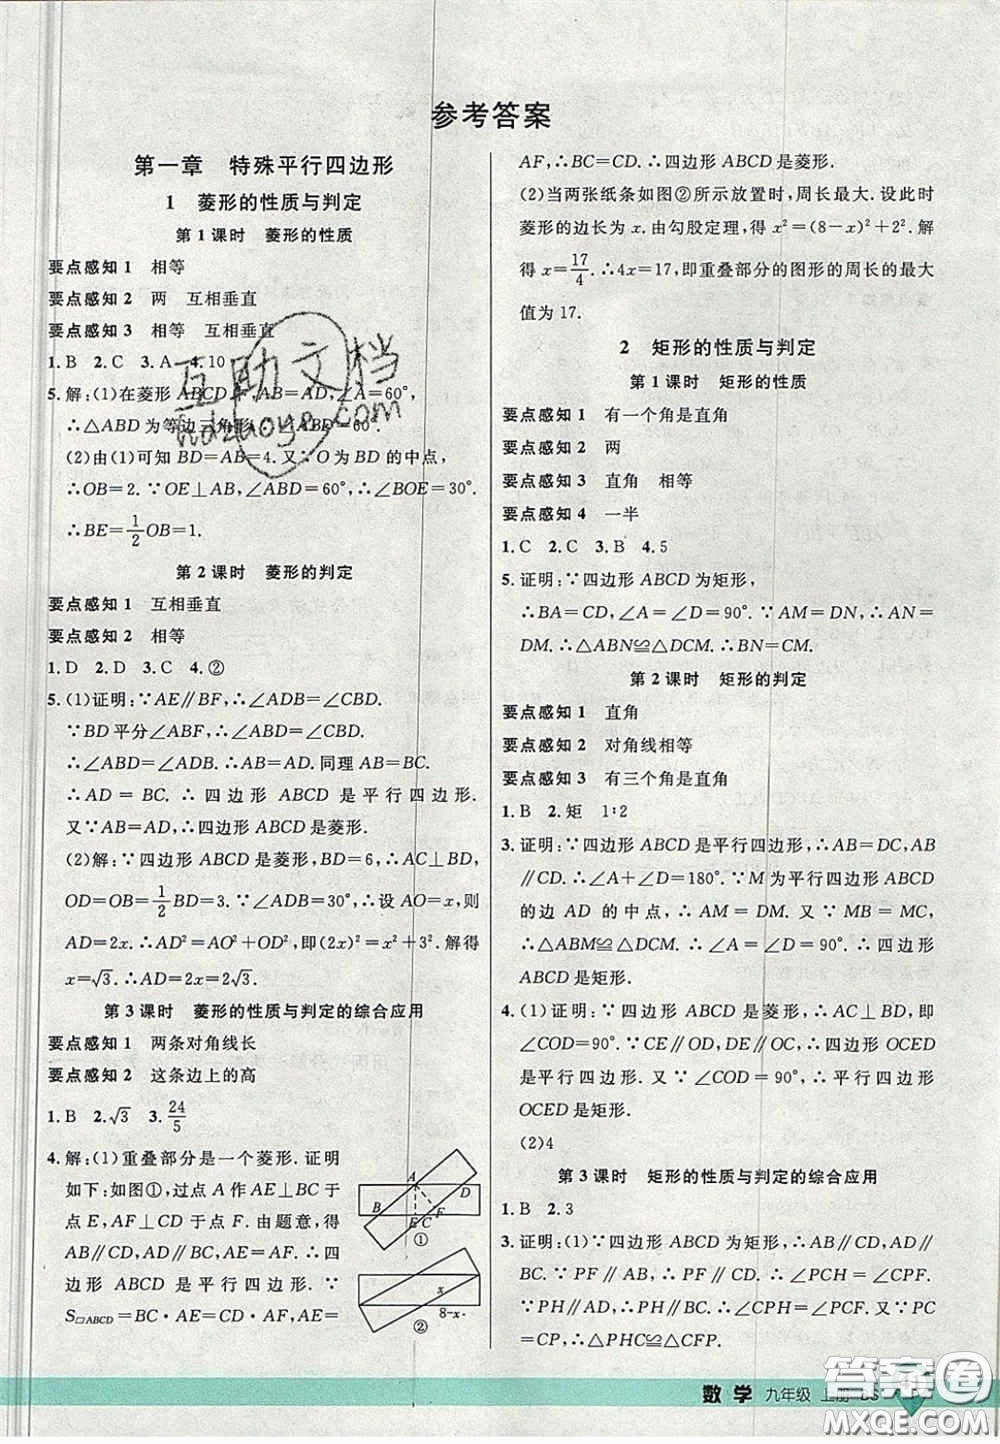 参考答案
第一章 特殊平行四边形
1 菱形的性质与判定
第1课时 菱形的性质
要点感知1 相等
要点感知2 两 互相垂直
要点感知3 相等 互相垂直
1.B 2.C 3.A 4.10
5.解:(1)在菱形ABCD中,AB=AD,∠A=60°,
∴△ABD为等边三角形.
(2)由(1)可知BD=AB=4.又∵O为BD的中点,
∴OB=2.∵OE⊥AB,∠ABD=60°,∴∠BOE=30°.
∴BE=1/2OB=1.
第2课时 菱形的判定
要点感知1 互相垂直
要点感知2 相等
1.D 2.D 3.C 4.②
5.(1)证明:∵AE∥BF,∴∠ADB=∠CBD.
∵BD平分∠ABF,∴∠ABD=∠CBD.
∴∠ABD=∠ADB.∴AB=AD.同理AB=BC.
∴AD=BC.∴四边形ABCD是平行四边形.
又∵AB=AD,∴四边形ABCD是菱形.
(2)解:∵四边形ABCD是菱形,BD=6,∴AC⊥BD,
OD=OB=1/2BD=3.∵∠ADB=30°,∴设AO=x,则
AD=2x.∴AD²=AO²+OD²,即(2x)²=x²+3².解得
x=√3.∴AD=2x=2√3.
第3课时 菱形的性质与判定的综合应用
要点感知1 两条对角线长
要点感知2 这条边上的高
1.B 2.√3 3.24/5
4.解:(1)重叠部分是一个菱形.证明
如下:如图①,过点A作AE⊥BC于
点E,AF⊥CD于点F.由题意,得
AB∥CD,AD∥BC,AE=AF.∴四
边形ABCD是平行四边形.∵
S▱ABCD=BC·AE=CD·AF,AE=
A
B D
E C F
①
x
8-x
②
AF,∴BC=CD.∴四边形ABCD是菱形.
(2)当两张纸条如图②所示放置时,周长最大.设此时
菱形的边长为x.由勾股定理,得x²=(8-x)²+2².解
得x=17/4.∴4x=17,即重叠部分的图形的周长的最大
值为17.
2 矩形的性质与判定
第1课时 矩形的性质
要点感知1 有一个角是直角
要点感知2 两
要点感知3 直角 相等
要点感知4 一半
1.C 2.C 3.B 4.5
5.证明:∵四边形ABCD为矩形,
∴BA=CD,∠A=∠D=90°.∵AM=DN,∴AN=
DM.∴△ABN≌△DCM.∴BN=CM.
第2课时 矩形的判定
要点感知1 直角
要点感知2 对角线相等
要点感知3 有三个角是直角
1.B 2.矩 1∶2
3.证明:∵四边形ABCD是平行四边形,∴AB=DC,AB
∥CD.∴∠A+∠D=180°.∵M为平行四边形ABCD
的边AD的中点,∴AM=DM.又∵MB=MC,
∴△ABM≌△DCM.∴∠A=∠D=90°.∴四边形
ABCD是矩形.
4.(1)证明:∵四边形ABCD是菱形,∴AC⊥BD,即
∠COD=90°.∵CE∥OD,DE∥OC,∴四边形OCED
是平行四边形.又∵∠COD=90°,∴平行四边形
OCED是矩形.
(2)4
第3课时 矩形的性质与判定的综合应用
1.B 2.3
3.证明:(1)∵四边形ABCD为矩形,∴AB∥CD,AD∥
BC.∵PF∥AB,∴PF∥CD.∴∠CPF=∠PCH.
∵PH∥AD,∴PH∥BC.∴∠PCF=∠CPH.又∵PC
=CP,∴△PHC≌△CFP.
数学 九年级 上册 DS
互助文档
hdzuoye.com
答案圈
MXQE.COM